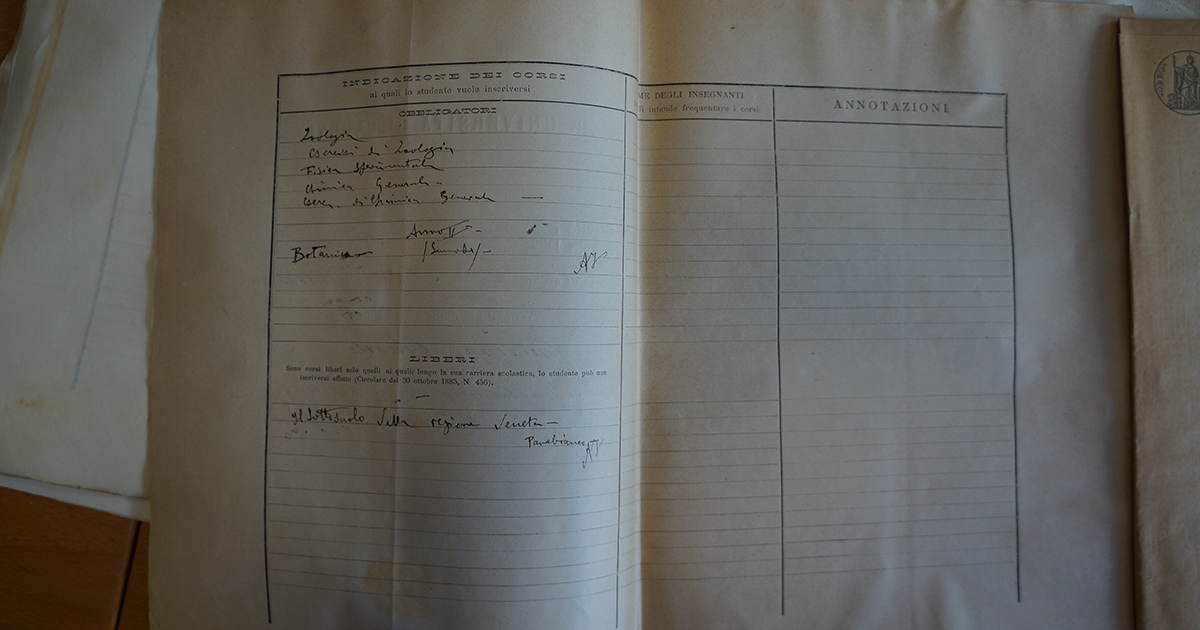 INDICAZIONE DEI CORSI
ai quali lo studente vuole inscriversi
OBBLIGATORI
Zoologia
Esercizi di Zoologia
Fisica Sperimentale
Chimica Generale
Eserc. di Chimica Generale
Anno II
Botanica
LIBERI
Sono corsi liberi solo quelli ai quali, lungo la sua carriera scolastica, lo studente può non
inscriversi affatto (Circolare del 30 ottobre 1885, N. 456).
Il Sottosuolo della regione Veneta
ME DEGLI INSEGNANTI
li intende frequentare i corsi
ANNOTAZIONI